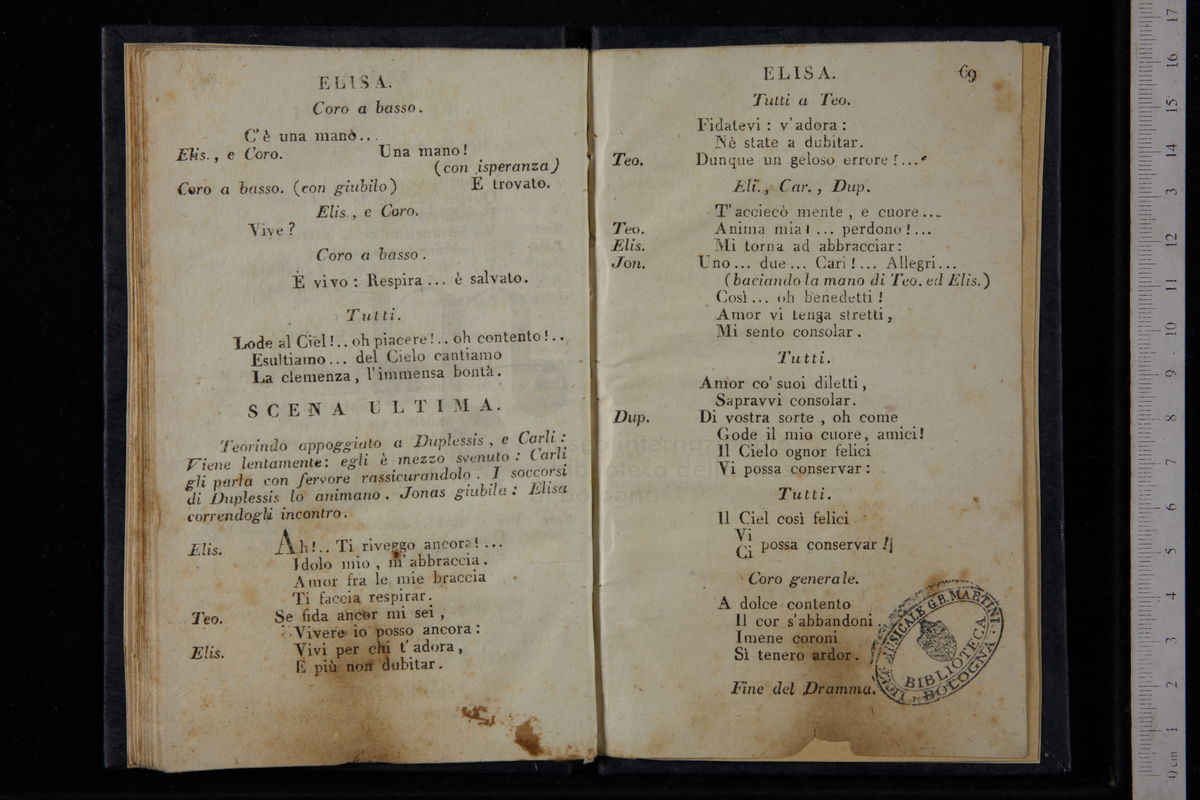 ELISA.
Coro a basso.
C'è una mano...
Elis., e Coro. Una mano!
(con isperanza)
Coro a basso. (con giubilo) E trovato.
Elis., e Coro.
Vive?
Coro a basso.
È vivo: Respira... è salvato.
Tutti.
Lode al Ciel!.. oh piacere!.. oh contento!..
Esultiamo... del Cielo cantiamo
La clemenza, l'immensa bontà.
SCENA ULTIMA.
Teorindo appoggiato a Duplessis, e Carli:
Viene lentamente: egli è mezzo svenuto: Carli
gli parla con fervore rassicurandolo. I soccorsi
di Duplessis lo animano. Jonas giubila: Elisa
correndogli incontro.
Elis. Ah!.. Ti riveggo ancora!...
Idolo mio, m'abbraccia.
Amor fra le mie braccia
Ti faccia respirar.
Teo. Se fida ancor mi sei,
Vivere io posso ancora:
Elis. Vivi per chi t'adora,
E più non dubitar.
ELISA. 69
Tutti a Teo.
Fidatevi: v'adora:
Nè state a dubitar.
Teo. Dunque un geloso errore!...
Eli., Car., Dup.
T'acciecò mente, e cuore...
Teo. Anima mia!... perdono!...
Elis. Mi torna ad abbracciar:
Jon. Uno... due... Cari!... Allegri...
(baciando la mano di Teo. ed Elis.)
Così... oh benedetti!
Amor vi tenga stretti,
Mi sento consolar.
Tutti.
Amor co' suoi diletti,
Sapravvi consolar.
Dup. Di vostra sorte, oh come
Gode il mio cuore, amici!
Il Cielo ognor felici
Vi possa conservar:
Tutti.
Il Ciel così felici
Vi
Ci possa conservar!
Coro generale.
A dolce contento
Il cor s'abbandoni.
Imene coroni
Sì tenero ardor.
Fine del Dramma.
MUSICALE G.B. MARTINI
BIBLIOTECA
BOLOGNA